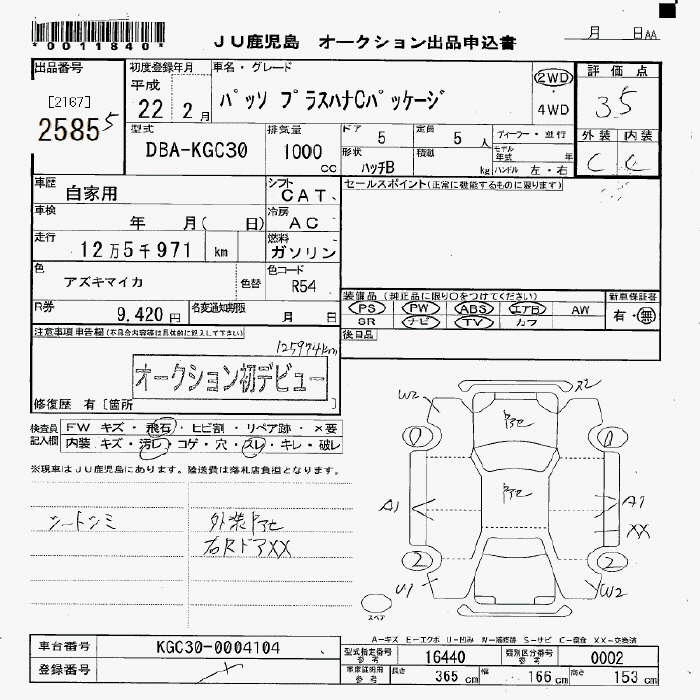 *0011840*
JU鹿児島 オークション出品申込書
月 日 AA
出品番号
[2167]
2585 5
初度登録年月
平成
22 2月
車名・グレード
パッソ プラスハナCパッケージ
2WD
・
4WD
評価点
3.5
外装 内装
C C
型式
DBA-KGC30
排気量
1000 cc
ドア 5
定員 5 人
形状 ハッチB
積載 kg
ディーラー・並行
モデル年式 年
ハンドル 左・右
車歴
自家用
シフト
CAT.
セールスポイント(正常に機能するものに限ります)
車検
年 月( 日)
冷房
AC
走行
12万5千971 km
燃料
ガソリン
色
アズキマイカ
色替
色コード
R54
R券
9,420円
名変通知期限
月 日
装備品(純正品に限り○をつけてください)
PS PW ABS エアB AW
SR ナビ TV カワ
新車保証書
有・無
後日品
注意事項申告欄(不具合内容等は具体的に記入して下さい)
125974km
オークション初デビュー
修復歴 有〔箇所
検査員記入欄
FW キズ・飛石・ヒビ割・リペア跡・×要
内装 キズ・汚レ・コゲ・穴・スレ・キレ・破レ
※現車はJU鹿児島にあります。陸送費は落札店負担となります。
シートシミ
外装ドアセ
右RドアXX
W2
ヌ2
ドアセ
ドアセ
A1
A1
XX
2
2
U1
W2
スペア
A-キズ E-エクボ U-凹み W-補修跡 S-サビ C-腐食 XX-交換済
車台番号
KGC30-0004104
登録番号
型式指定番号 参考
16440
類別区分番号 参考
0002
車庫証明用 参考
長さ 365 cm
幅 166 cm
高さ 153 cm